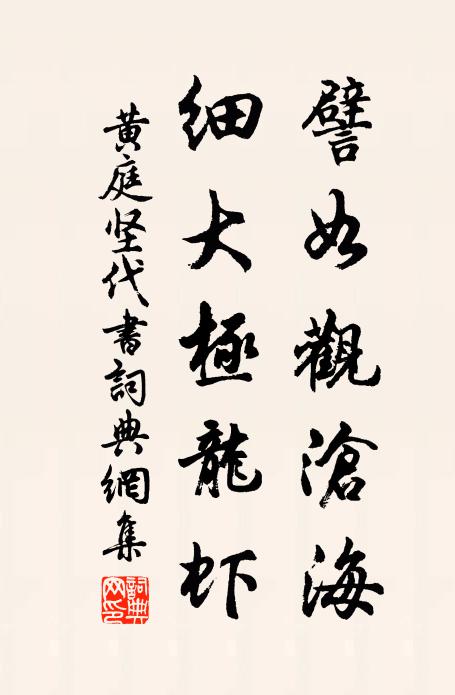 譬如觀滄海
細大極龍虾
黄庭坚代書詞典網集
詞典網印